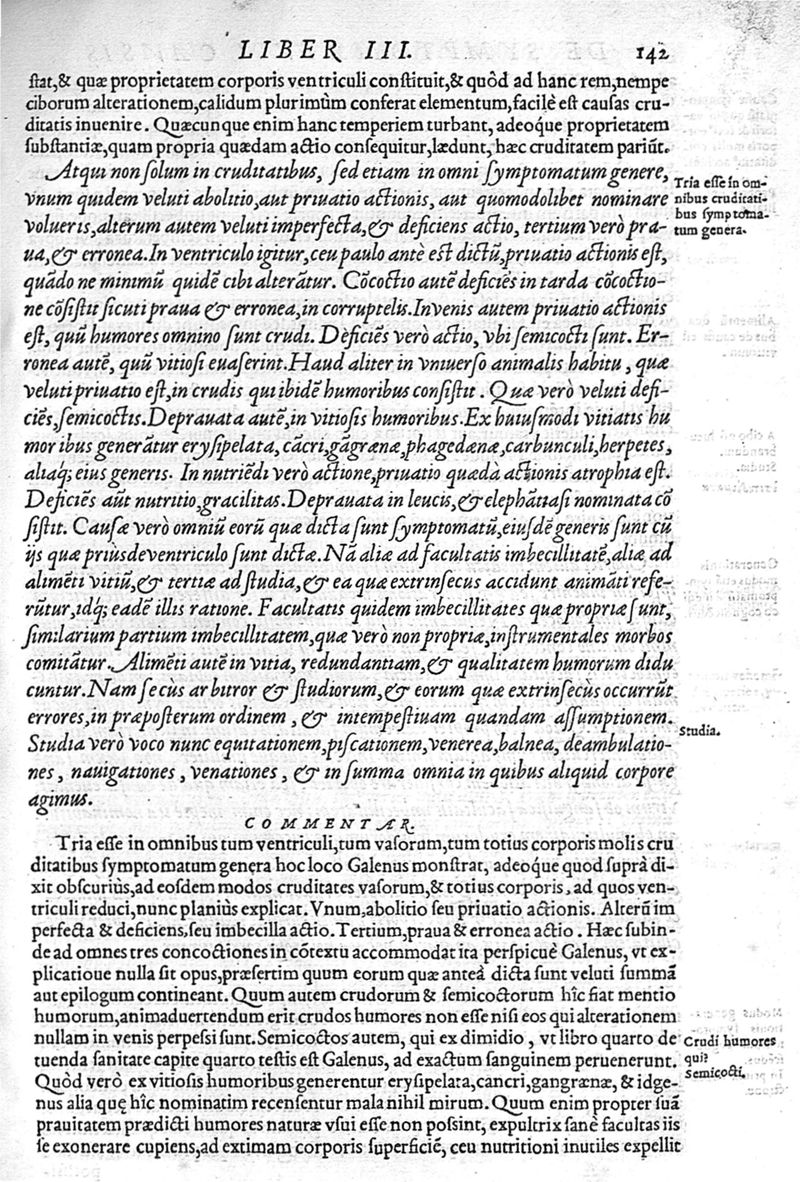 LIBER III. 142
stat,& quæ proprietatem corporis ventriculi constituit,& quôd ad hanc rem,nempe
ciborum alterationem,calidum plurimùm conferat elementum,facilè est causas cru-
ditatis inuenire. Quæcunque enim hanc temperiem turbant, adeoq́ue proprietatem
substantiæ,quam propria quædam actio consequitur,lædunt, hæc cruditatem pariũt.
Atqui non solum in cruditatibus, sed etiam in omni symptomatum genere,
vnum quidem veluti abolitio,aut priuatio actionis, aut quomodolibet nominare
volueris,alterum autem veluti imperfecta,& deficiens actio, tertium verò pra-
ua,& erronea.In ventriculo igitur,ceu paulo antè est dictũ,priuatio actionis est,
quãdo ne minimũ quidẽ cibi alterãtur. Cõcoctio autẽ deficiẽs in tarda cõcoctio-
ne cõsistit sicuti praua & erronea,in corruptelis.In venis autem priuatio actionis
est, quũ humores omnino sunt crudi. Deficiẽs verò actio, vbi semicocti sunt. Er-
ronea autẽ, quũ vitiosi euaserint.Haud aliter in vniuerso animalis habitu, quæ
veluti priuatio est,in crudis qui ibidẽ humoribus consistit. Quæ verò veluti defi-
ciẽs,semicoctis.Deprauata autẽ,in vitiosis humoribus.Ex huiusmodi vitiatis hu
moribus generãtur erysipelata, cãcri,gãgrænæ,phagedænæ,carbunculi,herpetes,
aliaq́; eius generis. In nutriẽdi verò actione,priuatio quædã actionis atrophia est.
Deficiẽs aũt nutritio,gracilitas.Deprauata in leucis,& elephãtiasi nominata cõ
sistit. Causæ verò omniũ eorũ quæ dicta sunt symptomatũ,eiusdẽ generis sunt cũ
ijs quæ priùs de ventriculo sunt dictæ. Nã aliæ ad facultatis imbecillitatẽ,aliæ ad
alimẽti vitiũ,& tertiæ ad studia,& ea quæ extrinsecus accidunt animãti refe-
rũtur,idq́; eadẽ illis ratione. Facultatis quidem imbecillitates quæ propriæ sunt,
similarium partium imbecillitatem,quæ verò non propriæ,instrumentales morbos
comitãtur. Alimẽti autẽ in vitia, redundantiam,& qualitatem humorum didu
cuntur.Nam secùs arbitror & studiorum,& eorum quæ extrinsecùs occurrũt
errores,in præposterum ordinem, & intempestiuam quandam assumptionem.
Studia verò voco nunc equitationem,piscationem,venerea,balnea, deambulatio-
nes, nauigationes, venationes, & in summa omnia in quibus aliquid corpore
agimus.
Tria esse in om-
nibus cruditati-
bus symptoma-
tum genera.
Studia.
COMMENTAR.
Tria esse in omnibus tum ventriculi,tum vasorum,tum totius corporis molis cru
ditatibus symptomatum genera hoc loco Galenus monstrat, adeoq́ue quod suprà di-
xit obscuriùs,ad eosdem modos cruditates vasorum,& totius corporis, ad quos ven-
triculi reduci,nunc planiùs explicat. Vnum,abolitio seu priuatio actionis. Alterũ im
perfecta & deficiens,seu imbecilla actio. Tertium,praua & erronea actio. Hæc subin-
de ad omnes tres concoctiones in cõtextu accommodat ita perspicuè Galenus, vt ex-
plicatioue nulla sit opus,præsertim quum eorum quæ anteà dicta sunt veluti summã
aut epilogum contineant. Quum autem crudorum & semicoctorum hîc fiat mentio
humorum,animaduertendum erit crudos humores non esse nisi eos qui alterationem
nullam in venis perpessi sunt.Semicoctos autem, qui ex dimidio, vt libro quarto de
tuenda sanitate capite quarto testis est Galenus, ad exactum sanguinem peruenerunt.
Quòd verò ex vitiosis humoribus generentur erysipelata,cancri,gangrænæ, & idge-
nus alia quę hîc nominatim recensentur mala nihil mirum. Quum enim propter suã
prauitatem prædicti humores naturæ vsui esse non possint, expultrix sanè facultas iis
se exonerare cupiens,ad extimam corporis superficiẽ, ceu nutritioni inutiles expellit
Crudi humores
qui?
Semicocti.